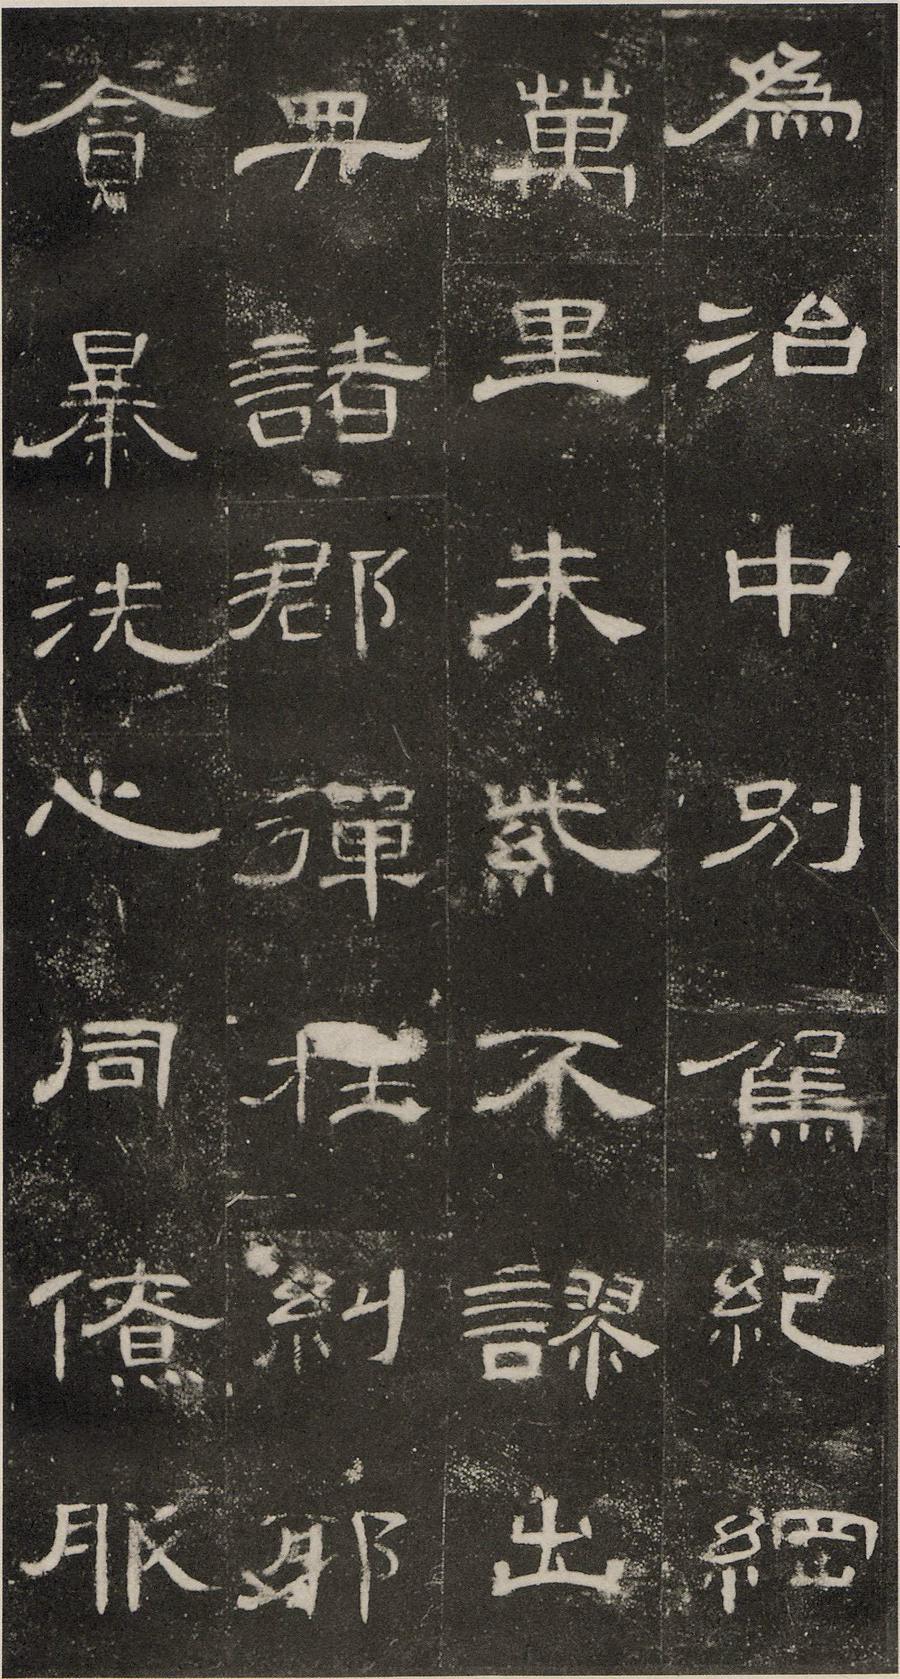 為治中別駕紀綱
萬里朱紫不謬出
典諸郡彈枉糾邪
貪暴洗心同僚服